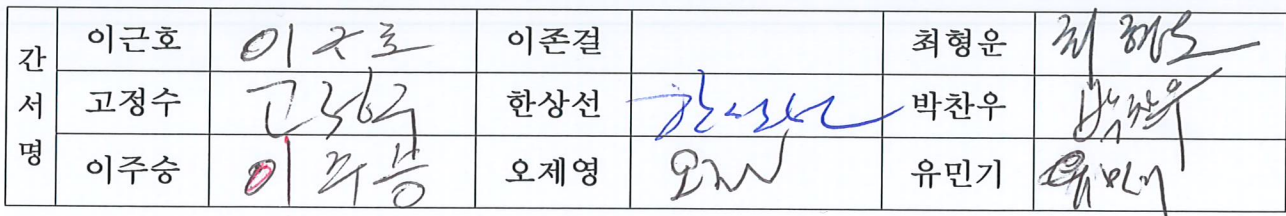 간서명 이근호 이근호 이존결 최형운 최형운
고정수 고정수 한상선 한상선 박찬우 박찬우
이주승 이주승 오제영 유민기 유민기